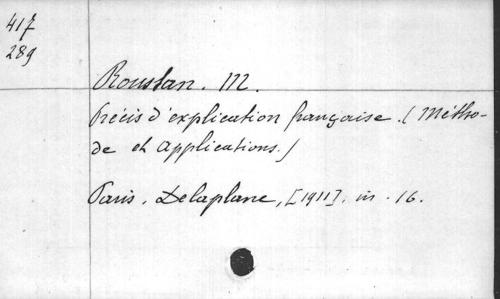 417
289
Roustan. M.
Précis d'explication française. (Métho-
de et applications.)
Paris. Delaplane, [1911]. in-16.